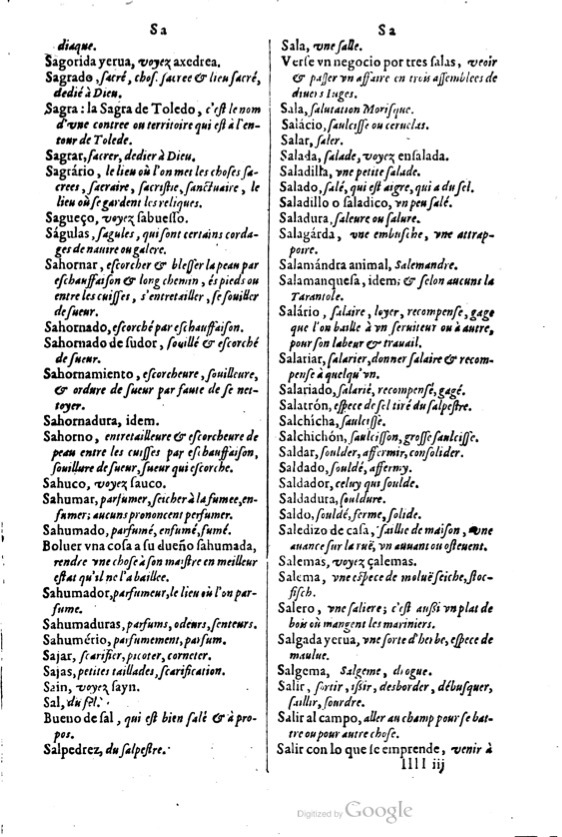 Sa
diaque.
Sagorida yerua, voyez axedrea.
Sagrado, ſacré, choſ. ſacree & lieu ſacré,
dedié à Dieu.
Sagra: la Sagra de Toledo, c'eſt le nom
d'vne contree ou territoire qui eſt à l'en-
tour de Tolede.
Sagrar, ſacrer, dedier à Dieu.
Sagrário, le lieu où l'on met les choſes ſa-
crees, ſacraire, ſacriſtie, ſanctuaire, le
lieu où ſe gardent les reliques.
Sagueço, voyez ſabueſſo.
Ságulas, ſagules, qui ſont certains corda-
ges de nauire ou galere.
Sahornar, eſcorcher & bleſſer la peau par
eſchauffaiſon & long chemin, és pieds ou
entre les cuiſſes, s'entretailler, ſe ſouiller
de ſueur.
Sahornado, eſcorché par eſchauffaiſon.
Sahornado de ſudor, ſouillé & eſcorché
de ſueur.
Sahornamiento, eſcorcheure, ſouilleure,
& ordure de ſueur par faute de ſe net-
toyer.
Sahornadura, idem.
Sahorno, entretailleure & eſcorcheure de
peau entre les cuiſſes par eſchauffaiſon,
ſouillure de ſueur, ſueur qui eſcorche.
Sahuco, voyez ſauco.
Sahumar, parfumer, ſeicher à la fumee, en-
fumer; aucuns prononcent perfumer.
Sahumado, parfumé, enfumé, fumé.
Boluer vna coſa a ſu dueño ſahumada,
rendre vne choſe à ſon maiſtre en meilleur
eſtat qu'il ne l'a baillee.
Sahumador, parfumeur, le lieu où l'on par-
fume.
Sahumaduras, parfums, odeurs, ſenteurs.
Sahumério, parfumement, parfum.
Sajar, ſcarifier, picoter, corneter.
Sajas, petites taillades, ſcarification.
Sain, voyez ſayn.
Sal, du ſel.
Bueno de ſal, qui eſt bien ſalé & à pro-
pos.
Salpedrez, du ſalpeſtre.
Sa
Sala, vne ſalle.
Verſe vn negocio por tres ſalas, veoir
& paſſer vn affaire en trois aſſemblees de
diuers Iuges.
Sala, ſalutation Moriſque.
Salácio, ſaulciſſe ou ceruelas.
Salar, ſaler.
Salada, ſalade, voyez enſalada.
Saladilla, vne petite ſalade.
Salado, ſalé, qui eſt aigre, qui a du ſel.
Saladillo o ſaladico, vn peu ſalé.
Saladura, ſaleure ou ſalure.
Salagárda, vne embuſche, vne attrap-
poire.
Salamándra animal, Salemandre.
Salamanqueſa, idem; & ſelon aucuns la
Tarantole.
Salário, ſalaire, loyer, recompenſe, gage
que l'on baille à vn ſeruiteur ou à autre,
pour ſon labeur & trauail.
Salariar, ſalarier, donner ſalaire & recom-
penſe à quelqu'vn.
Salariado, ſalarié, recompenſé, gagé.
Salatrón, eſpece de ſel tiré du ſalpeſtre.
Salchícha, ſaulciſſe.
Salchichón, ſaulciſſon, groſſe ſaulciſſe.
Saldar, ſoulder, affermir, conſolider.
Saldado, ſouldé, affermy.
Saldador, celuy qui ſoulde.
Saldadura, ſouldure.
Saldo, ſouldé, ferme, ſolide.
Saledizo de caſa, ſaillie de maiſon, vne
auance ſur la ruë, vn auuant ou oſteuent.
Salemas, voyez çalemas.
Salema, vne eſpece de moluë ſeiche, ſtoc-
fiſch.
Salero, vne ſaliere; c'eſt auſſi vn plat de
bois où mangent les mariniers.
Salgada yerua, vne ſorte d'herbe, eſpece de
maulue.
Salgema, Salgeme, drogue.
Salir, ſortir, iſſir, desborder, débuſquer,
ſaillir, ſourdre.
Salir al campo, aller au champ pour ſe bat-
tre ou pour autre choſe.
Salir con lo que ſe emprende, venir à
IIII iij
Digitized by Google